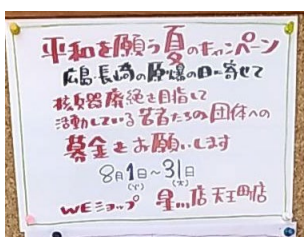 平和を願う夏のキャンペーン
広島・長崎の原爆の日に寄せて
核兵器廃絶を目指して
活動している若者たちの団体への
募金をお願いします
8月1日〜31日
(木)
WEショップ 星川店 天王町店